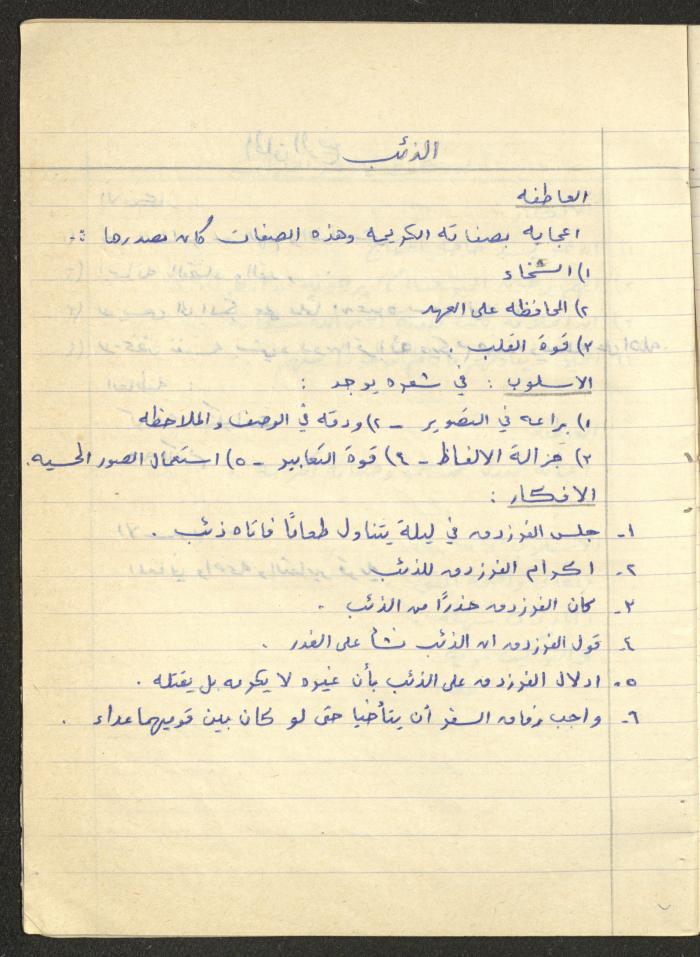 الذئب
العاطفه
اعجابه بصفاته الكريمه وهذه الصفات كان مصدرها :-
١) السخاء
٢) المحافظه على العهد
٣) قوة القلب .
الاسلوب : في شعره يوجد :
١) براعه في التصوير - ٢) ودقه في الوصف والملاحظه
٣) جزالة الالفاظ - ٤) قوة التعابير - ٥) استعمال الصور الحسيه.
الافكار :
١- جلس الفرزدق في ليلة يتناول طعامًا فاتاه ذئب .
٢- اكرام الفرزدق للذئب
٣- كان الفرزدق حذرًا من الذئب .
٤- قول الفرزدق ان الذئب نشأ على الغدر .
٥- ادلال الفرزدق على الذئب بأن غيره لا يكرمه بل يقتله .
٦- واجب رفاق السفر أن يتأخيا حتى لو كان بين قوميهما عداء .